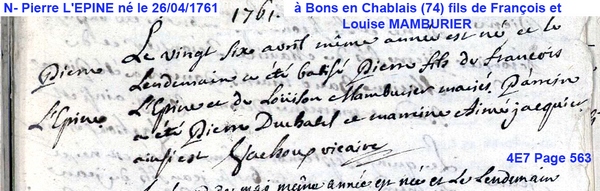 N- Pierre L'EPINE né le 26/04/1761 à Bons en Chablais (74) fils de François et
Louise MAMBURIER
1761.
Pierre
L'Epine
Le vingt six avril même année est né et le
Lendemain a été batisé Pierre fils de françois
L'Epine et de Loüison Mamburier mariés Parrein
a été Pierre Duchatel et marraine Aimé jacquier
ainsi est Jachoux vicaire
4E7 Page 563
mai même année est née et le Lendemain